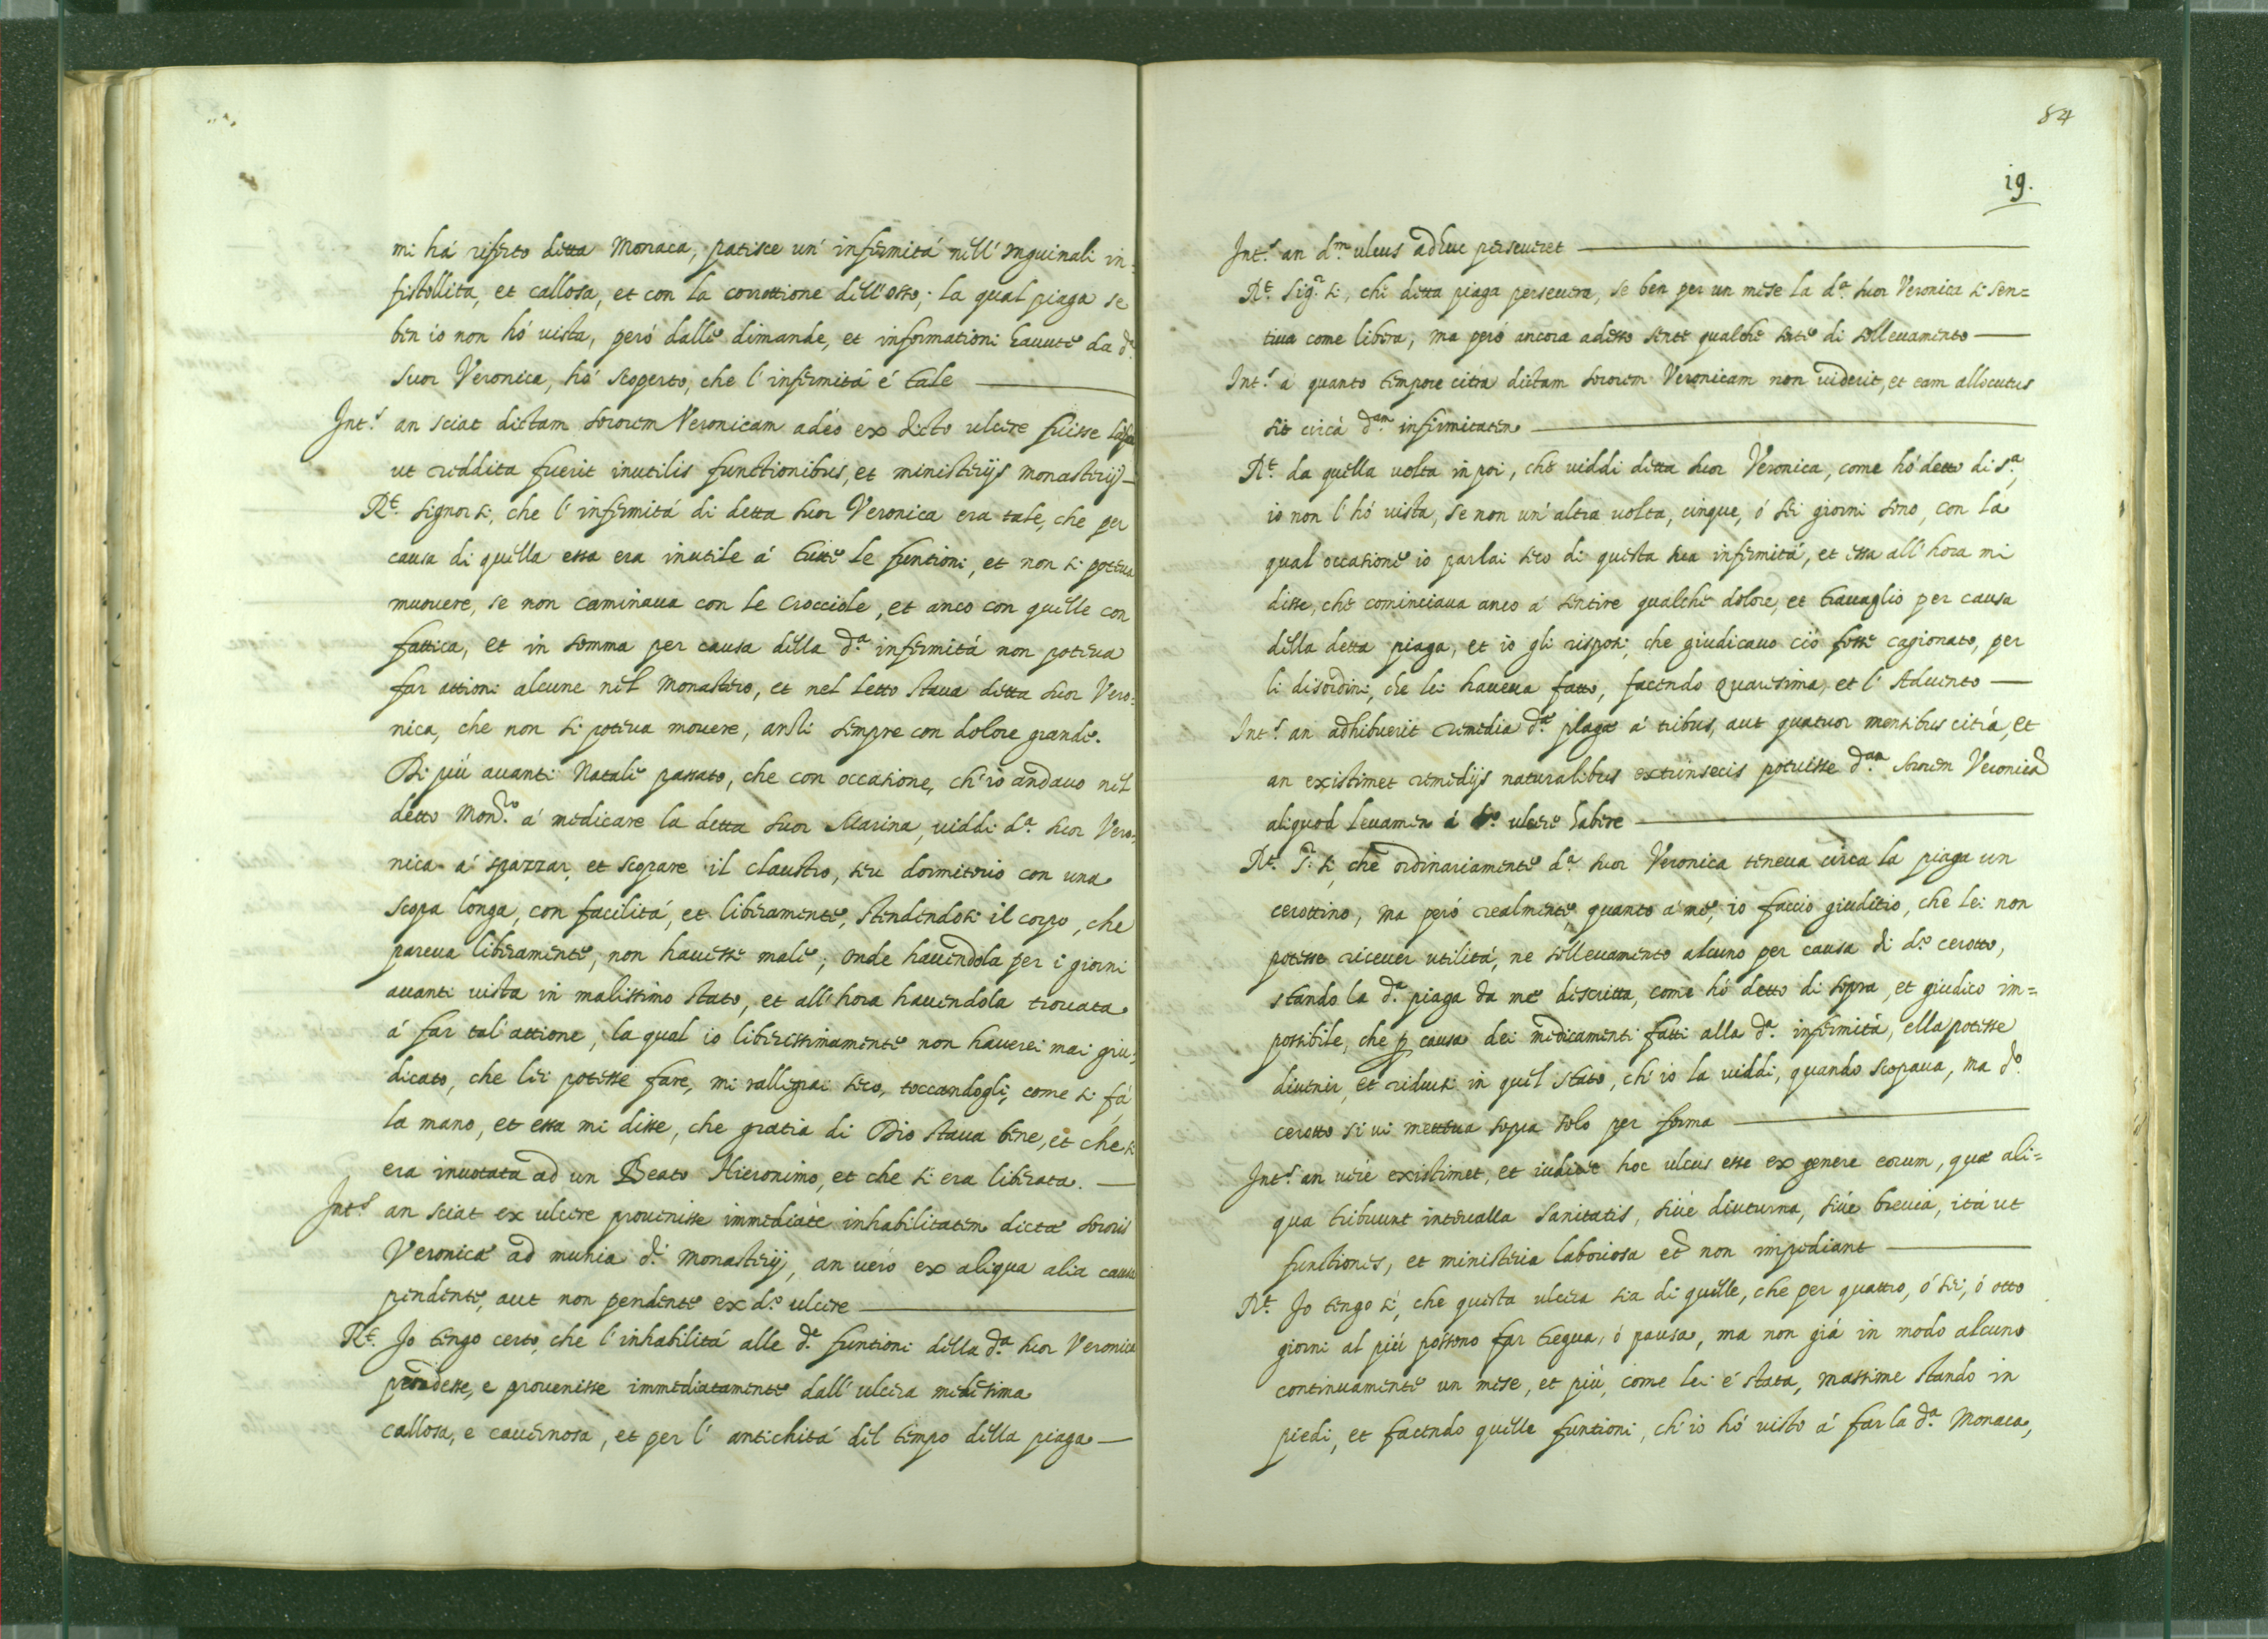 mi há riferto detta Monaca, patisce un' infermitá nell' Inguinali in-
fistollita, et callosa, et con la corrottione dell'osso; la qual piaga se
ben io non hó vista, peró dalle dimande, et informationi havute da d.ª
Suor Veronica, hó scoperto, che l'infermitá é tale
Int.s an sciat dictam sororem Veronicam adeò ex dicto ulcere fuisse
ut reddita fuerit inutilis functionibus, et ministerijs monasterij
R.t signor si, che l'infermitá di detta suor Veronica era tale, che per
causa di quella essa era inutile á tutte le funtioni, et non si poteva
muovere, se non caminava con le crocciole, et anco con quelle con
fattica, et in somma per causa della d.ª infermitá non poteva
far attioni alcune nel Monastero, et nel letto stava detta suor Vero-
nica, che non si poteva movere, ansi sempre con dolore grande.
Di piú avanti Natale passato, che con occasione, ch'io andavo nel
detto Mon.ro á medicare la detta suor Marina, viddi d.ª suor Vero-
nica á spazzar, et scopare il claustro, seu dormitorio con una
scopa longa, con facilitá, et liberamente, stendendosi il corpo, che
pareva liberamente, non havesse male; onde havendola per i giorni
avanti vista in malissimo stato, et all'hora havendola trovata
á far tal'attione, la qual io liberissimamente non haverei mai giu-
dicato, che lei potesse fare, mi rallegrai seco, toccandogli, come si fá
la mano, et essa mi disse, che gratia di Dio stava bene, et che si
era invotata ad un Beato Hieronimo, et che si era liberata.
Int.s an sciat ex ulcere provenisse immediatè inhabilitatem dictæ sororis
Veronicæ ad munia d.i Monasterij, an verò ex aliqua alia causa
pendente, aut non pendente ex d.o ulcere
R.t Io tengo certo, che l'inhabilitá alle d.e funtioni della d.ª suor Veronica
pendesse, e provenisse immediatamente dall'ulcera medesima
callosa, e cavernosa, et per l'antichitá del tempo della piaga
84
19.
Int.s an d.m ulcus adhuc perseveret
R.t Sig.r si, che detta piaga persevera, se ben per un mese la d.ª suor Veronica si sen=
tiva come libera, ma peró ancora adesso sente qualche sorte di sollevamento
Int.s á quanto tempore citra dictam sororem Veronicam non viderit, et eam allocutus
sit circà d.am infirmitatem
R.t da quella volta in poi, che viddi detta suor Veronica, come hó detto di s.ª,
io non l'hó vista, se non un'altra volta, cinque, ó sei giorni sono, con la
qual occasione io parlai seco di questa sua infermitá, et essa all'hora mi
disse, che cominciava anco á sentire qualche dolore, et travaglio per causa
della detta piaga, et io gli risposi, che giudicavo ció fosse cagionato, per
li disordini, che lei haveva fatto, facendo Quaresima, et l'Advento
Int.s an adhibuerit remedia d.æ plagæ á tribus, aut quatuor mensibus citrá, et
an existimet remedijs naturalibus extrinsecis potuisse d.am sororem Veronicam
aliquod levamen á d.o ulcere habere
R.t S.r si, che ordinariamente d.ª suor Veronica teneva circa la piaga un
cerottino, ma peró realmente, quanto a me, io faccio giuditio, che lei non
potesse ricever utilitá, ne sollevamento alcuno per causa di d.o cerotto,
stando la d.ª piaga da me descritta, come hó detto di sopra, et giudico im=
possibile, che p causa dei medicamenti fatti alla d.ª infermitá, ella potesse
divenir, et ridursi in quel stato, ch'io la viddi, quando scopava, ma d.o
cerotto si vi metteva sopra solo per forma
Int.s an verè existimet, et iudicet hoc ulcus esse ex genere eorum, quæ ali=
qua tribuunt intervalla sanitatis, sivè diuturna, sivè brevia, itá ut
functiones, et ministeria laboriosa ed non impediant
R.t Io tengo sí, che questa ulcera sia di quelle, che per quattro, ó sei, ó otto
giorni al piú possono far tregua, ó pausa, ma non giá in modo alcuno
continuamente un mese, et piú, come lei é stata, massime stando in
piedi, et facendo quelle funtioni, ch'io hó visto á far la d.ª Monaca,